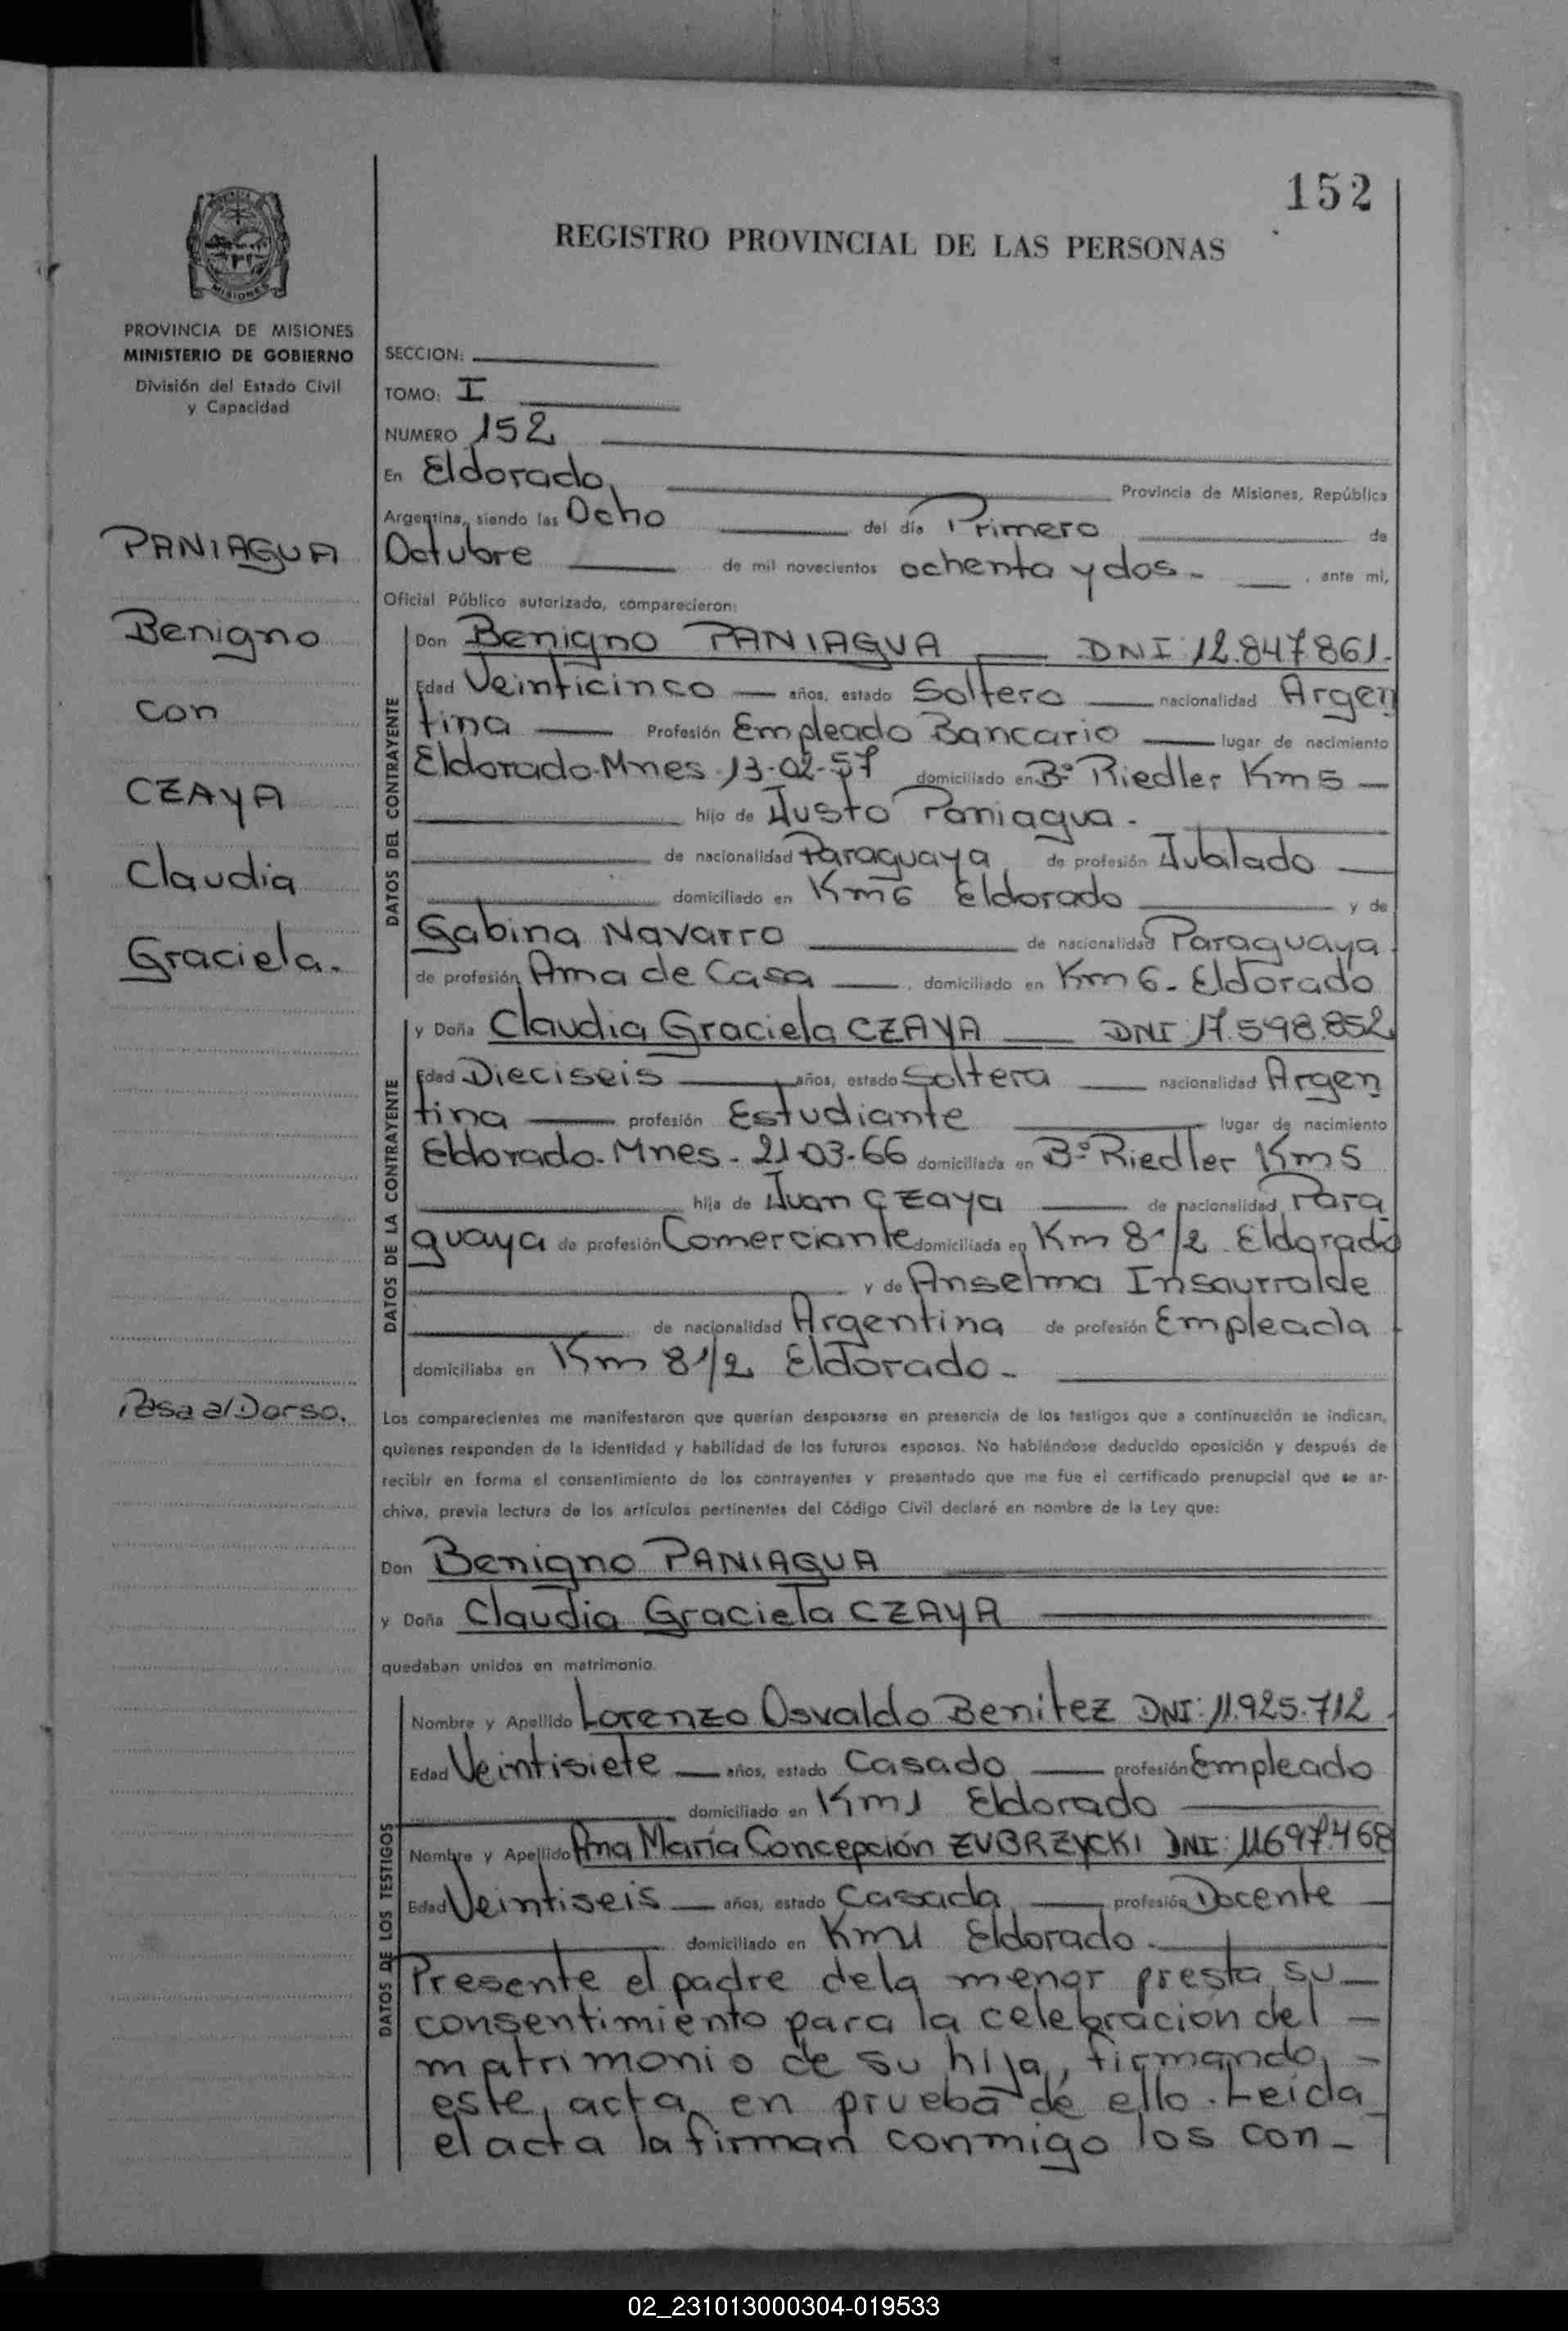 152
REGISTRO PROVINCIAL DE LAS PERSONAS
MISIONES
PROVINCIA DE MISIONES
MINISTERIO DE GOBIERNO
División del Estado Civil
y Capacidad
PANIAGUA
Benigno
con
CZAYA
Claudia
Graciela.
Pasa al Dorso.
SECCION:
TOMO: I
NUMERO 152
En Eldorado, Provincia de Misiones, República
Argentina, siendo las Ocho del día Primero de
Octubre de mil novecientos ochenta y dos - , ante mi,
Oficial Público autorizado, comparecieron:
DATOS DEL CONTRAYENTE
Don Benigno PANIAGUA DNI 12.847.861.
Edad Veinticinco años, estado Soltero nacionalidad Argen
tina Profesión Empleado Bancario lugar de nacimiento
Eldorado-Mnes 13-02-57 domiciliado en Bº Riedler Km 5
hijo de Justo Paniagua -
de nacionalidad Paraguaya de profesión Jubilado
domiciliado en Km 6 Eldorado y de
Gabina Navarro de nacionalidad Paraguaya
de profesión Ama de Casa , domiciliado en Km 6 - Eldorado
DATOS DE LA CONTRAYENTE
y Doña Claudia Graciela CZAYA DNI 17.598.852
Edad Dieciseis años, estado Soltera nacionalidad Argen
tina profesión Estudiante lugar de nacimiento
Eldorado-Mnes - 21-03-66 domiciliada en Bº Riedler Km 5
hija de Juan CZaya de nacionalidad Para
guaya de profesión Comerciante domiciliada en Km 8 1/2 Eldorado
y de Anselma Insaurralde
de nacionalidad Argentina de profesión Empleada
domiciliaba en Km 8 1/2 Eldorado -
Los comparecientes me manifestaron que querían desposarse en presencia de los testigos que a continuación se indican,
quienes responden de la identidad y habilidad de los futuros esposos. No habiéndose deducido oposición y después de
recibir en forma el consentimiento de los contrayentes y presentado que me fue el certificado prenupcial que se ar-
chiva, previa lectura de los artículos pertinentes del Código Civil declaré en nombre de la Ley que:
Don Benigno PANIAGUA
y Doña Claudia Graciela CZAYA
quedaban unidos en matrimonio.
DATOS DE LOS TESTIGOS
Nombre y Apellido Lorenzo Osvaldo Benitez DNI: 11.925.712
Edad Veintisiete años, estado Casado profesión Empleado
domiciliado en Km 1 Eldorado
Nombre y Apellido Ana María Concepción ZUBRZYCKI DNI: 11697.468
Edad Veintiseis años, estado Casada profesión Docente
domiciliado en Km 1 Eldorado.
Presente el padre de la menor presta su
consentimiento para la celebración del
matrimonio de su hija, firmando
este acta en prueba de ello. Leida
el acta la firman conmigo los con-
02_231013000304-019533